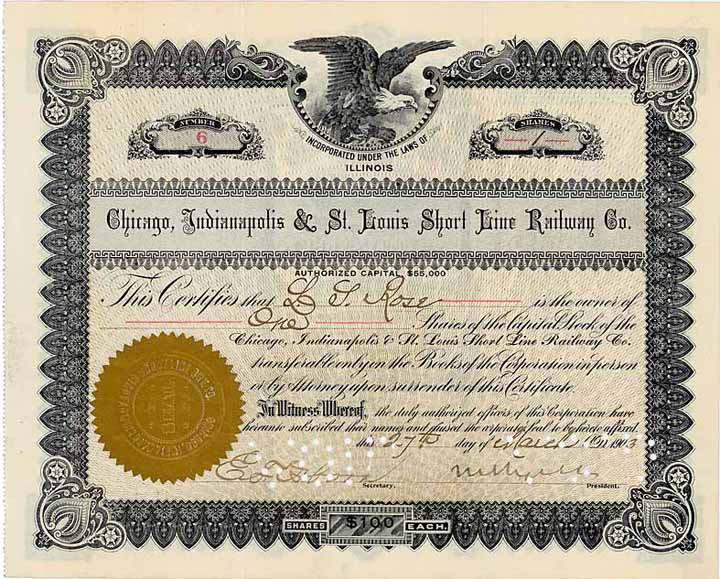 NUMBER
6
SHARES
1
INCORPORATED UNDER THE LAWS OF
ILLINOIS
Chicago, Indianapolis & St. Louis Short Line Railway Co.
AUTHORIZED CAPITAL, $55,000
This Certifies that L S Rose is the owner of
One Shares of the Capital Stock of the
Chicago, Indianapolis & St. Louis Short Line Railway Co.
transferable only on the Books of the Corporation in person
or by Attorney upon surrender of this Certificate.
In Witness Whereof, the duly authorized officers of this Corporation have
hereunto subscribed their names and caused the corporate seal to be hereto affixed
this 27th day of March 1903
Secretary.
President.
SHARES $100 EACH.